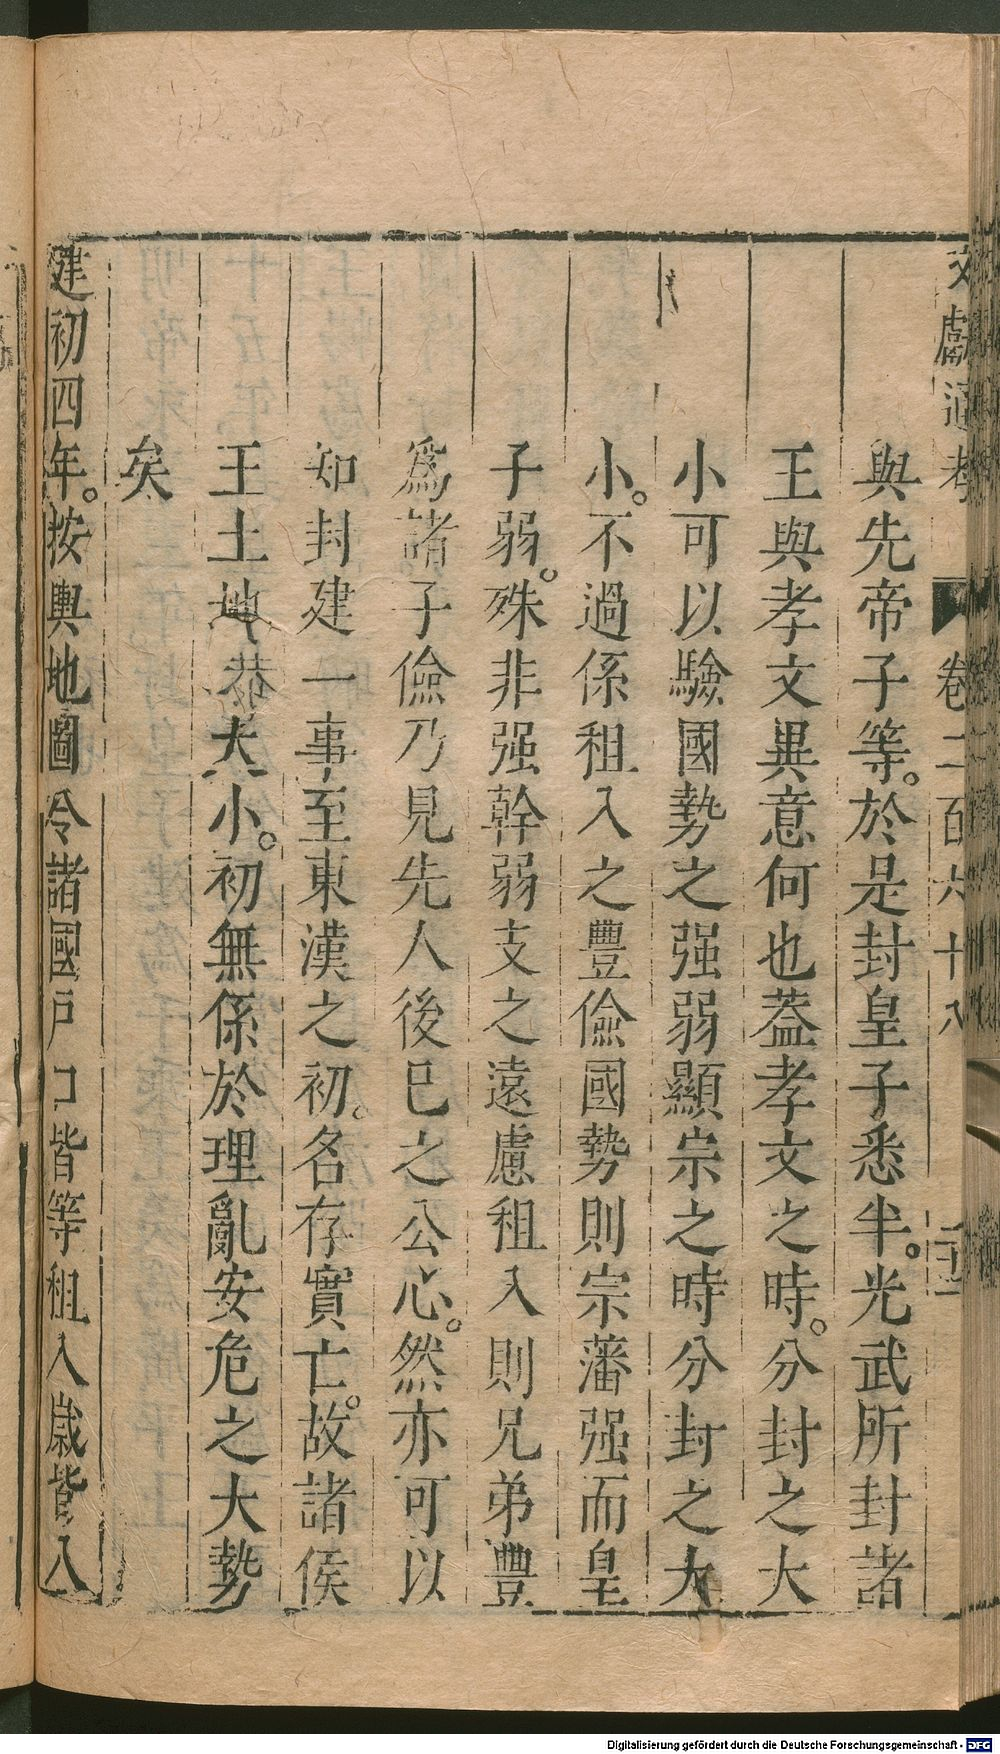 文獻通考 卷二百六十八
與先帝子等。於是封皇子悉半。光武所封諸
王與孝文異意何也蓋孝文之時。分封之大
小可以驗國勢之强弱顯宗之時分封之大
小。不過係租入之豐儉國勢則宗藩强而皇
子弱。殊非强幹弱支之遠慮租入則兄弟豐
爲諸子儉乃見先人後已之公心。然亦可以
知封建一事至東漢之初。名存實亡。故諸侯
王土地大小。初無係於理亂安危之大勢
矣
建初四年。按輿地圖令諸國戶口皆等租入歲皆八
Digitalisierung gefördert durch die Deutsche Forschungsgemeinschaft - DFG